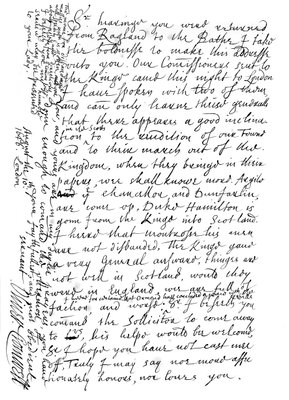 Sr hearinge you were returned
from Ragland to the Bathe, I take
the boldnesse to make this addresse
unto you. Our Comissioners sent to
the Kinge came this night to London
I have spoken with two of them
and can only learne theise generalls
that there appears a good inclina
tion in the Scots to the rendition of our Townes
and to their march out of the
Kingdom, when they bringe in their
papers, wee shall knowe more, Argile
Chancellor, and Dunfarlin,
are come up. Duke Hamilton is
gone from the Kinge into Scotland.
I heere that Montrosse his men
are not disbanded. The Kinge gave
a very generall answare, thinges are
not well in Scotland, would they
were in England, wee are full of
faction and worse.
I heere for certaine that Ormond has concluded a peace with the
Sr I beseech you
comand the Sollicitor to come away
to us, his helpe would be welcome,
Sr I hope you have not cast mee
off. Truly I may say none more affec
tionately honors, nor loves you.
you and yours are in my
Oliver Cromwell
August
London